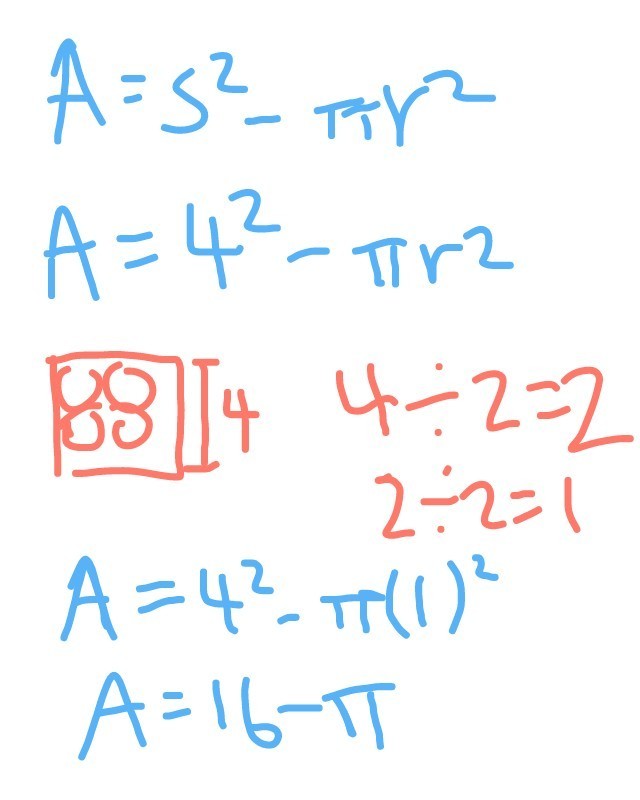 A = s² - πr²
A = 4² - πr²
4
4 ÷ 2 = 2
2 ÷ 2 = 1
A = 4² - π(1)²
A = 16 - π